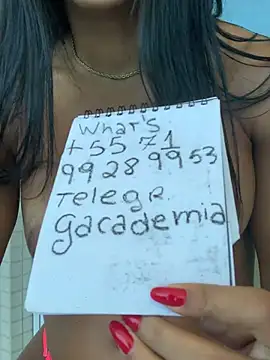 What's
+55 71
9928 9953
Telegr
gacademia